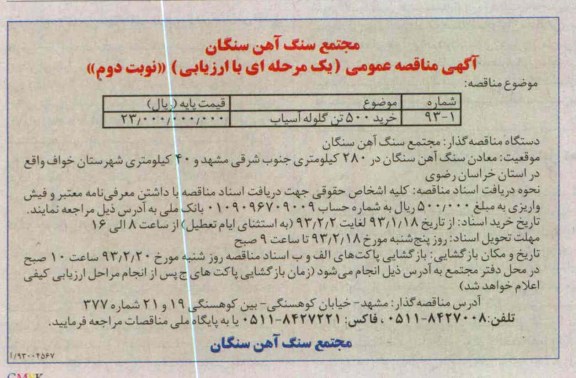 مجتمع سنگ آهن سنگان
آگهی مناقصه عمومی (یک مرحله ای با ارزیابی) «نوبت دوم»
موضوع مناقصه:
شماره موضوع قیمت پایه (ریال)
۹۳-۱ خرید ۵۰۰ تن گلوله آسیاب ۲۳/۰۰۰/۰۰۰/۰۰۰
دستگاه مناقصه گذار: مجتمع سنگ آهن سنگان
موقعیت: معادن سنگ آهن سنگان در ۲۸۰ کیلومتری جنوب شرقی مشهد و ۴۰ کیلومتری شهرستان خواف واقع
در استان خراسان رضوی
نحوه دریافت اسناد مناقصه: کلیه اشخاص حقوقی جهت دریافت اسناد مناقصه با داشتن معرفی نامه معتبر و فیش
واریزی به مبلغ ۵۰۰/۰۰۰ ریال به شماره حساب ۰۱۰۹۰۹۶۷۰۹۰۰۹ بانک ملی به آدرس ذیل مراجعه نمایند.
تاریخ خرید اسناد: از تاریخ ۹۳/۱/۱۸ لغایت ۹۳/۲/۲ (به استثنای ایام تعطیل) از ساعت ۸ الی ۱۶
مهلت تحویل اسناد: روز پنج شنبه مورخ ۹۳/۲/۱۸ تا ساعت ۹ صبح
تاریخ و مکان بازگشایی: بازگشایی پاکت های الف و ب اسناد مناقصه روز شنبه مورخ ۹۳/۲/۲۰ ساعت ۱۰ صبح
در محل دفتر مجتمع به آدرس ذیل انجام می شود (زمان بازگشایی پاکت های ج پس از انجام مراحل ارزیابی کیفی
اعلام خواهد شد)
آدرس مناقصه گذار: مشهد- خیابان کوهسنگی- بین کوهسنگی ۱۹ و ۲۱ شماره ۳۷۷
تلفن: ۸۴۲۷۰۰۸-۰۵۱۱ ، فاکس: ۸۴۲۷۲۲۱-۰۵۱۱ یا به پایگاه ملی مناقصات مراجعه فرمایید.
مجتمع سنگ آهن سنگان
۱/۹۳۰۰۲۵۶۷